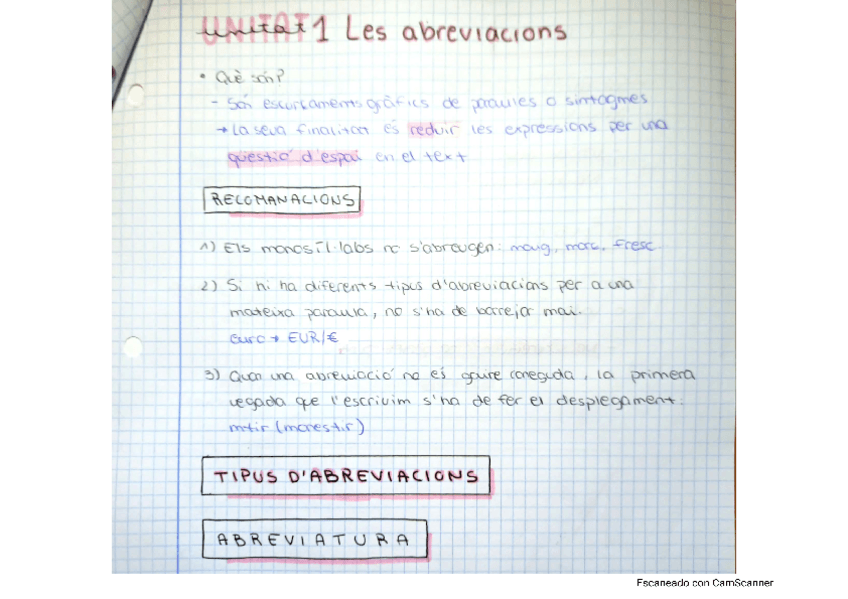 UNITAT 1 Les abreviacions
• Què són?
- Són escurçaments gràfics de paraules o sintagmes
→ La seva finalitat és reduir les expressions per una
qüestió d'espai en el text
RECOMANACIONS
1) Els monosíl·labs no s'abreugen: maig, març, fresc.
2) Si hi ha diferents tipus d'abreviacions per a una
mateixa paraula, no s'ha de barrejar mai.
Euro → EUR/€
3) Quan una abreviació no és gaire coneguda, la primera
vegada que l'escrivim s'ha de fer el desplegament:
mtir (monestir)
TIPUS D'ABREVIACIONS
ABREVIATURA
Escaneado con CamScanner